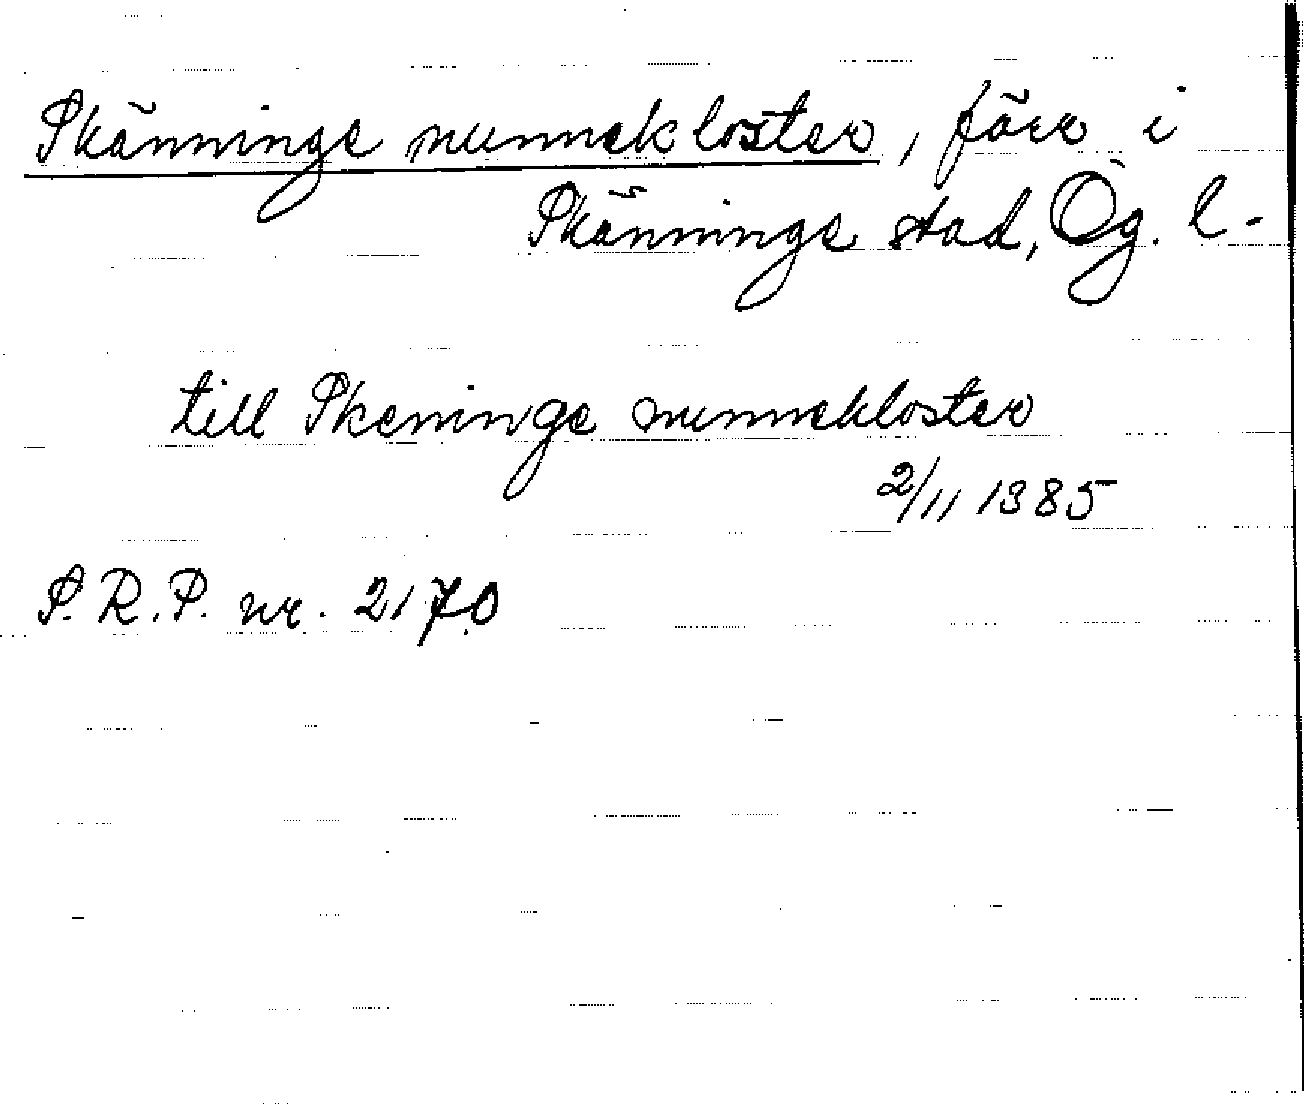 Skänninge nunnekloster, förr i
Skänninge stad, Ög. l.
till Skeninge nunnekloster
2/11 1385
S.R.P. nr. 2170